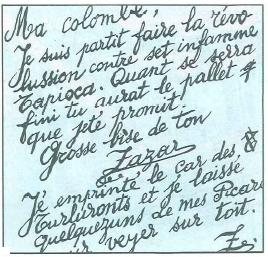 Ma colombe,
Je suis partit faire la révo
lussion contre set infamme
Tapioca. Quant se serra
fini tu aurat le pallet
que jeté promit.
Grosse bise de ton
Zazar
J'é emprinté le car des
Turluronts et je laisse
quelquezuns de mes Picaro
veyer sur toit.